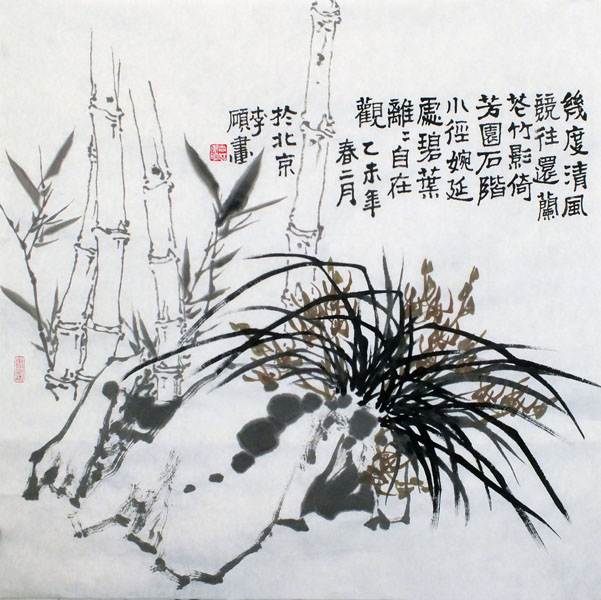 幾度清風
競往還蘭
花竹影倚
芳園石階
小徑婉延
處碧葉
離〻自在
觀 乙未年
春二月
於北京
李
畫